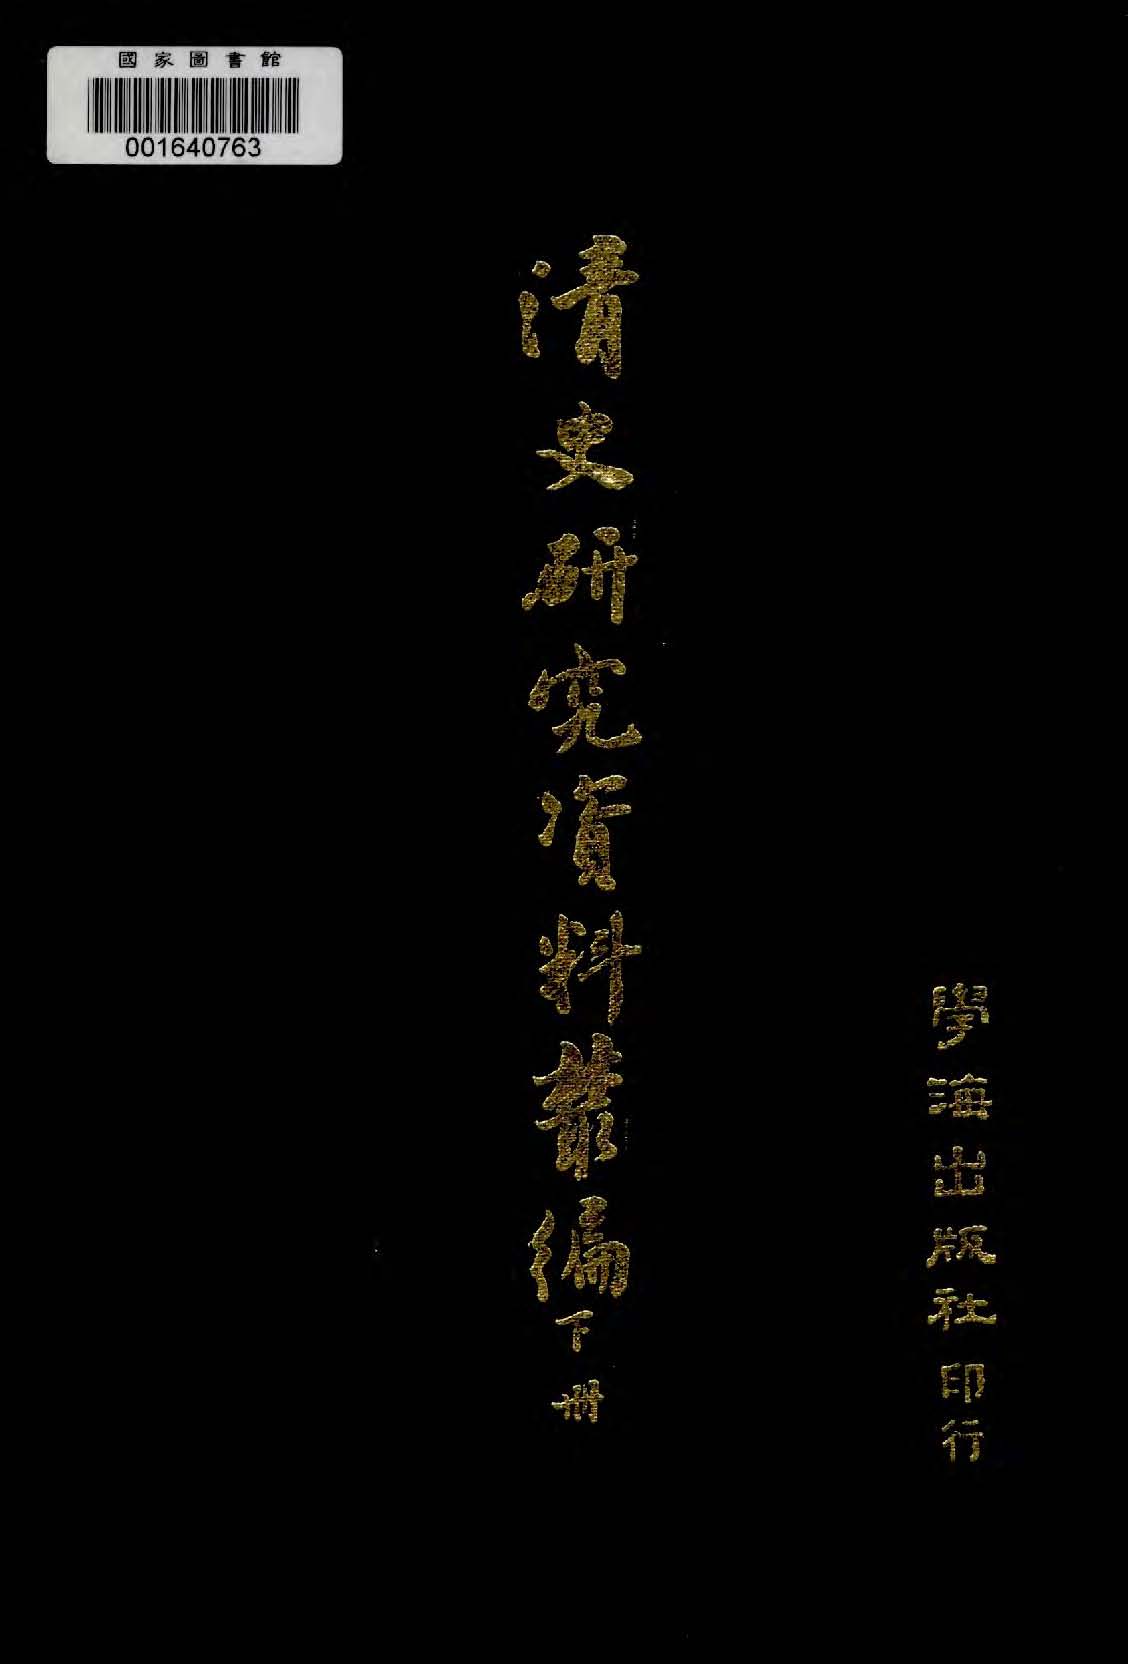 國家圖書館
001640763
清史研究資料叢編
下冊
學海出版社印行